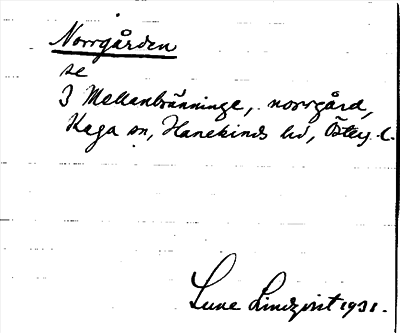 Norrgården
se
3 Mellanbränninge, norrgård,
Kaga sn, Hanekinds hd, Östg. l.
Sune Lindqvist 1931.